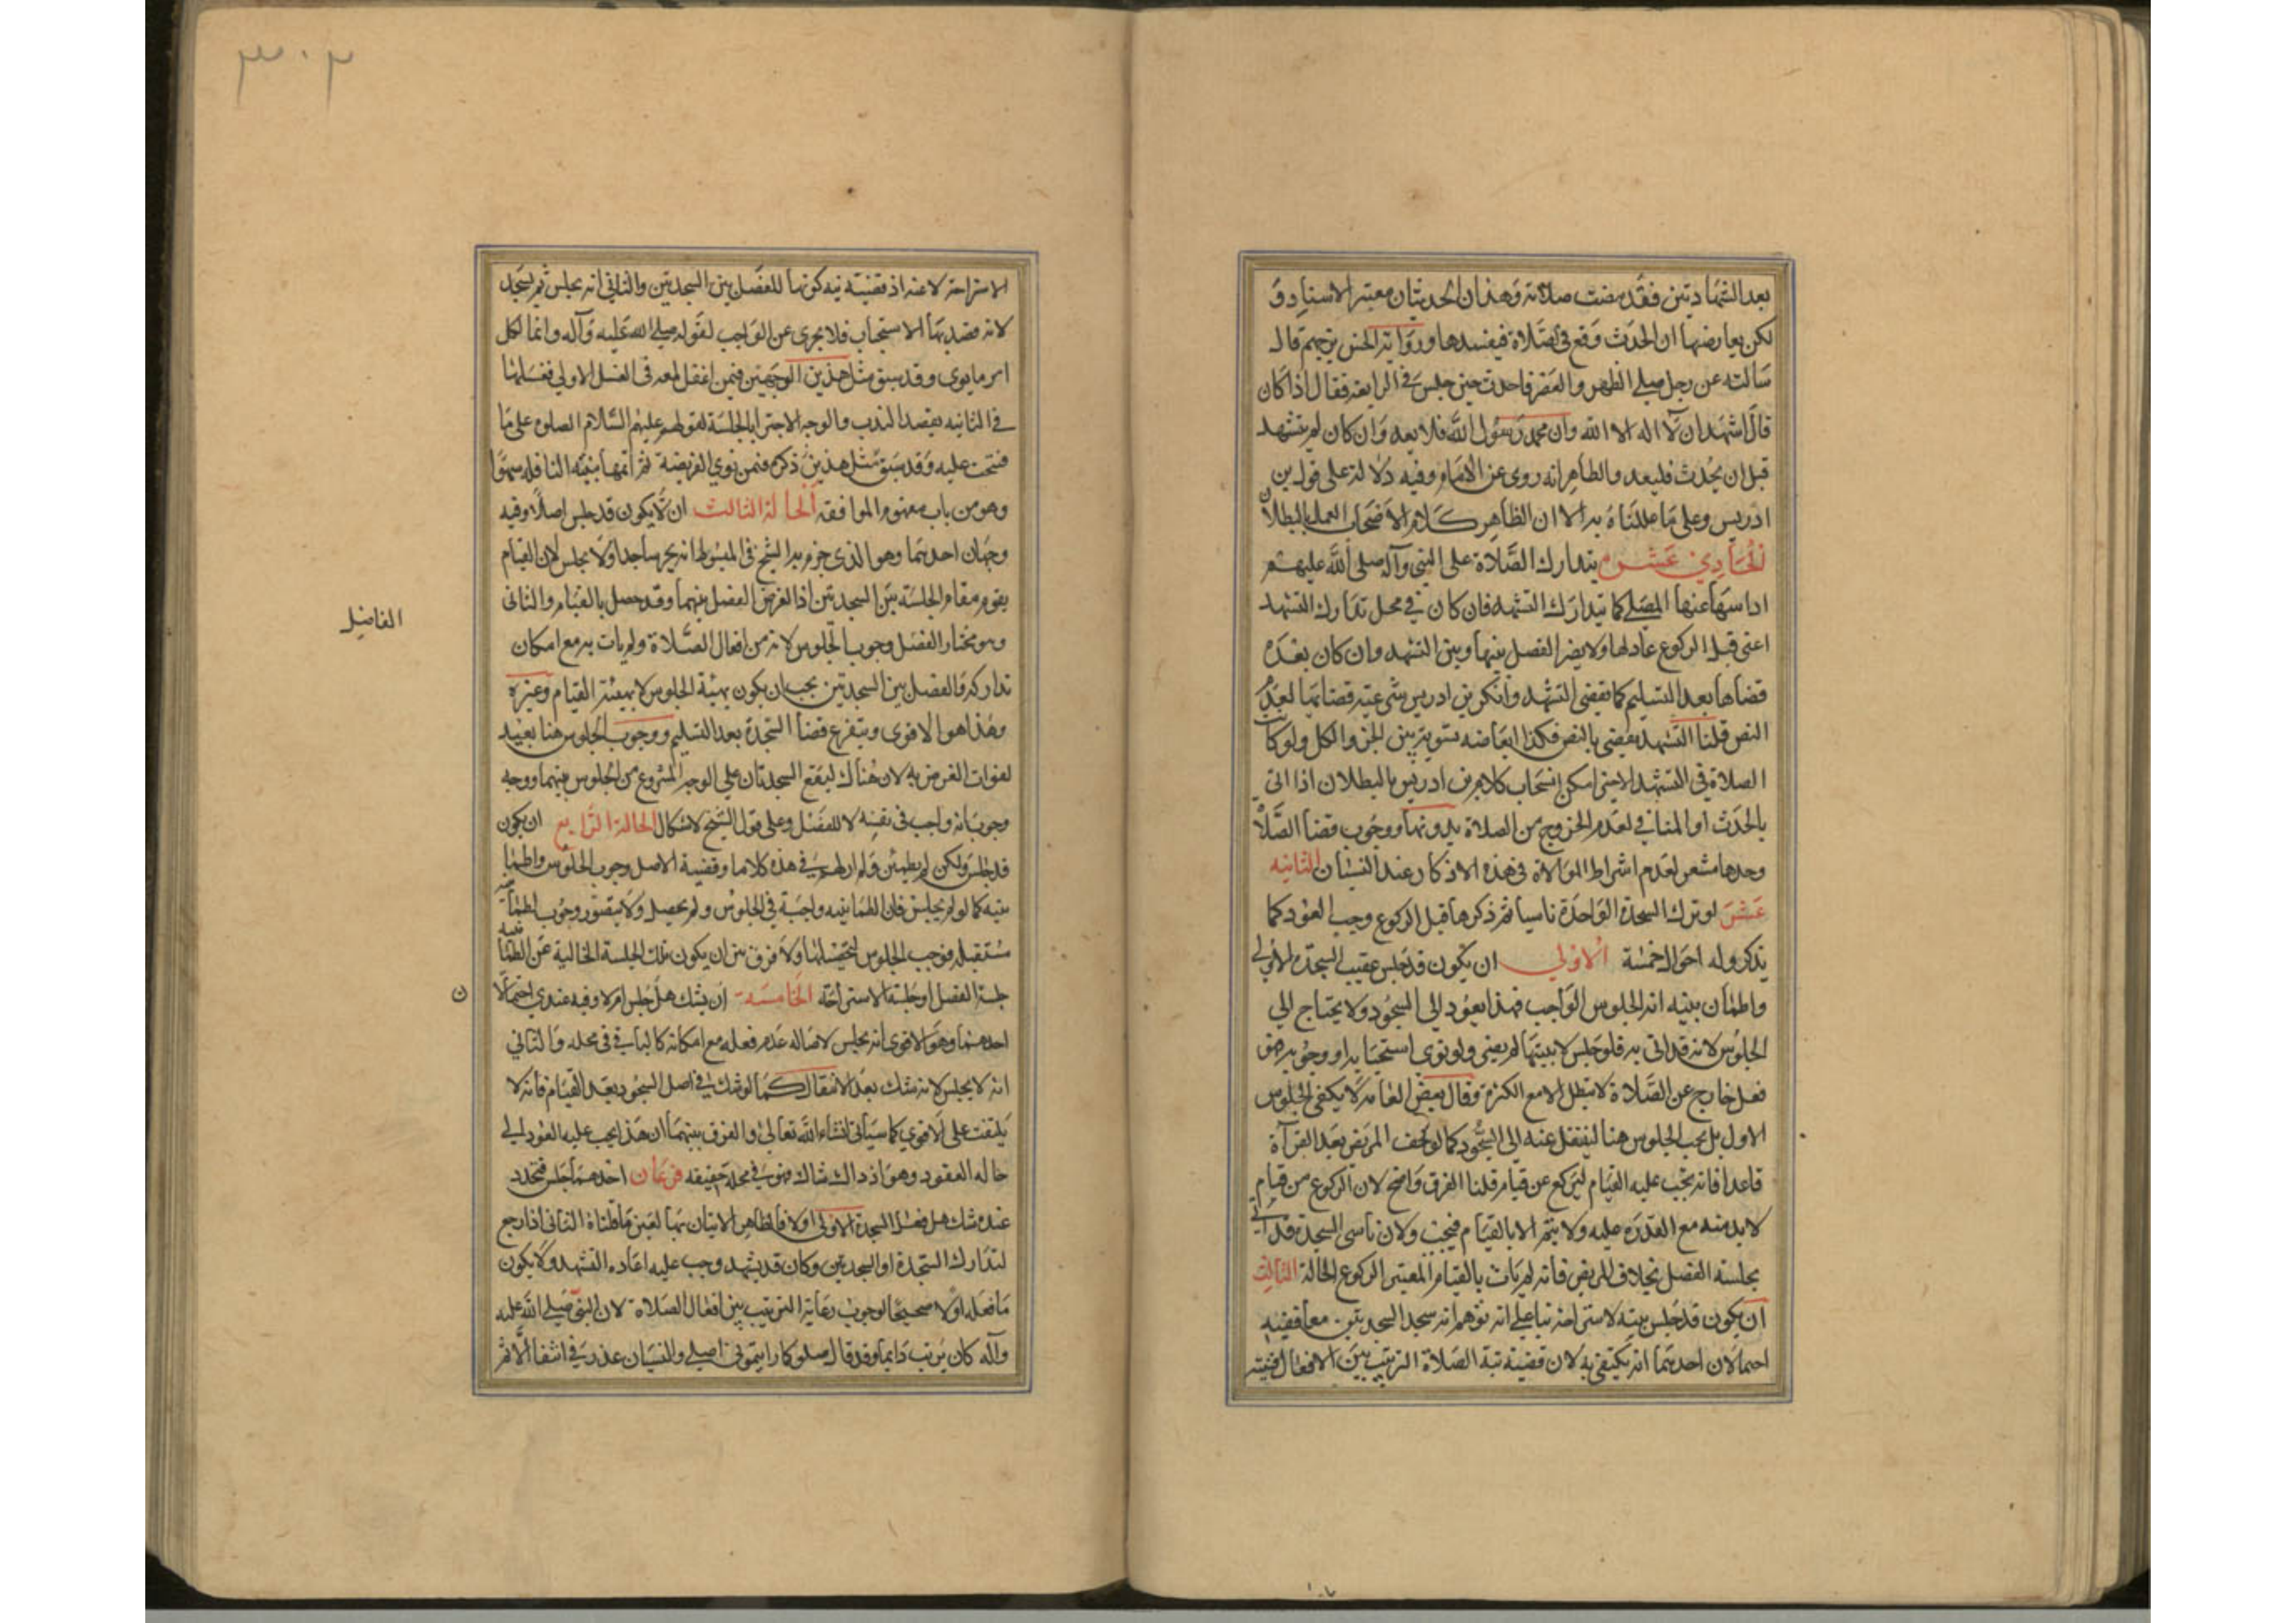 بعد الشهادتين فقد مضت صلاته وهذان الحديثان معتبرا الاسناد و
لكن يعارضها ان الحدث وقع في الصلاة فيفسدها ورواية الحسن بن جهم قال
سالته عن رجل صلى الظهر والعصر فاحدث حين جلس في الرابعه فقال اذا كان
قال اشهد ان لا اله الا الله وان محمد رسول الله فلا يعد وان كان لم يتشهد
قبل ان يحدث فليعد والظاهر انه روى عن الامام وفيه دلالة على قول بن
ادريس وعلى ما عللناه به الا ان الظاهر كلام الاصحاب العمل بالبطلان
الحادي عشر يتدارك الصلاة على النبي وآله صلى الله عليهم
اذا سها عنها المصلي كما يتدارك التشهد فان كان في محل تدارك التشهد
اعنى قبل الركوع عاد لها ولا يضر الفصل بينها وبين التشهد وان كان بعده
قضاها بعد التسليم كما يقضى التشهد وانكر بن ادريس شرعيه قضائها لعدم
النص قلنا التشهد يقضى بالنص فكذا ابعاضه تسوية بين الجزء والكل ولو كانت
الصلاة في التشهد الاخير امكن انسحاب كلام بن ادريس بالبطلان اذا اتى
بالحدث او المنافي لعدم الخروج من الصلاة بدونها ووجوب قضا الصلاة
وحدها مشعر لعدم اشتراط الموالاة في هذه الاذكار عند النسيان الثانيه
عشر لو ترك السجدة الواحدة ناسيا ثم ذكرها قبل الركوع وجب العود كما
يذكر وله احوال خمسة الاولى ان يكون قد جلس عقيب السجدة الاولى
واطمأن بنيه انه الجلوس الواجب فهذا يعود الى السجود ولا يحتاج الى
الجلوس لانه قد اتى به فلو جلس لا بنيتها لم يضر ولو نوى استحبابه او وجوبه فهو
فعل خارج عن الصلاة لا تبطل الا مع الكثرة وقال بعض العامة لا يكفى الجلوس
الاول بل يجب الجلوس هنا لينتقل عنه الى السجود كما لو خف المريض بعد القرآة
قاعدا فانه يجب عليه القيام ليركع عن قيام قلنا الفرق واضح لان الركوع من قيام
لا بد منه مع القدره عليه ولا يتم الا بالقيام فيجب ولان ناسى السجدة قد اتى
بجلسة الفصل بخلاف المريض فانه لم يات بالقيام المعتبر الركوع الحالة الثالث
ان يكون قد جلس بنية الاستراحة بنا على انه توهم انه سجد السجدتين معا ففيه
احتمالان احدهما انه يكتفى به لان قضية نية الصلاة الترتيب بين الافعال فنية
٣٠٣
الاستراحة لاغية اذ قضيته نيه كونها للفصل بين السجدتين والثاني انه يجلس ثم يسجد
لانه قصد بها الاستحباب فلا يجزى عن الواجب لقوله صلى الله عليه وآله وانما لكل
امرء ما نوى وقد سبق مثل هذين الوجهين فيمن اغفل لمعه في الغسل الاولى فغسلها
في الثانيه بقصد الندب والوجه الاجتزا بالجلسة لقولهم عليهم السلام الصلوه على ما
فتحت عليه وقد سبق مثل هذين ذكره فيمن نوى الفريضة ثم اتمها بنيه النافله سهوا
وهو من باب مفهوم الموافقه الحالة الثالث ان لا يكون قد جلس اصلا وفيه
وجهان احدهما وهو الذى جزم به الشيخ في المبسوط انه يخر ساجدا ولا يجلس لان القيام
يقوم مقام الجلسة بين السجدتين اذ الغرض الفصل بينهما وقد حصل بالقيام والثانى
وهو مختار الفضل وجوب الجلوس لانه من افعال الصلاة ولم يات به مع امكان
الفاضل
تداركه فالفصل بين السجدتين يجب ان يكون بهيئة الجلوس لا بهيئة القيام وغيره
وهذا هو الاقوى ويتفرع قضا السجدة بعد التسليم ووجوب الجلوس هنا بعيد
لفوات الغرض به لان هناك ليقع السجدتان على الوجه المشروع من الجلوس بينهما ووجه
وجوبه انه واجب في نفسه لا للفصل وعلى قول الشيخ لا اشكال الحالة الرابع ان يكون
قد جلس ولكن لم يطمئن ولم ار لهم في هذه كلاما وقضية الاصل وجوب الجلوس واطمئنا
نيه كما لو لم يجلس فان الطمأنينه واجبة في الجلوس ولم يحصل ولا يتصور وجوب اطمأنينه
مستقبله فوجب الجلوس لتحصيلها ولا فرق بين ان يكون تلك الجلسة الخالية عن الطمأنينه
جلسة الفصل او جلسة الاستراحه الخامسه ان يشك هل جلس ام لا وفيه عندى احتمالان
احدهما وهو الاقوى انه يجلس لاصاله عدم فعله مع امكانه كالباقي في محله والثاني
انه لا يجلس لانه شك بعد الانتقال كما لو شك في اصل السجود بعد القيام فانه لا
يلتفت على الاقوي كما سيأتى انشاء الله تعالى والفرق بينهما ان هذا يجب عليه العود الى
حاله القعود وهو اذ ذاك شاك فهو في محله حقيقه فرعان احدهما جلس فتجدد
عنده شك هل فعل السجدة الاولى او لا فالظاهر الاتيان بها لعين ما قلناه الثاني اذا رجع
لتدارك السجدة او السجدتين وكان قد تشهد وجب عليه اعاده التشهد ولا يكون
ما فعله اولا صحيحا لوجوب رعاية الترتيب بين افعال الصلاة لان النبي صلى الله عليه
وآله كان يرتب دايما وقد قال صلوا كما رايتمونى اصلى والنسيان عذر في انتفا الاثم